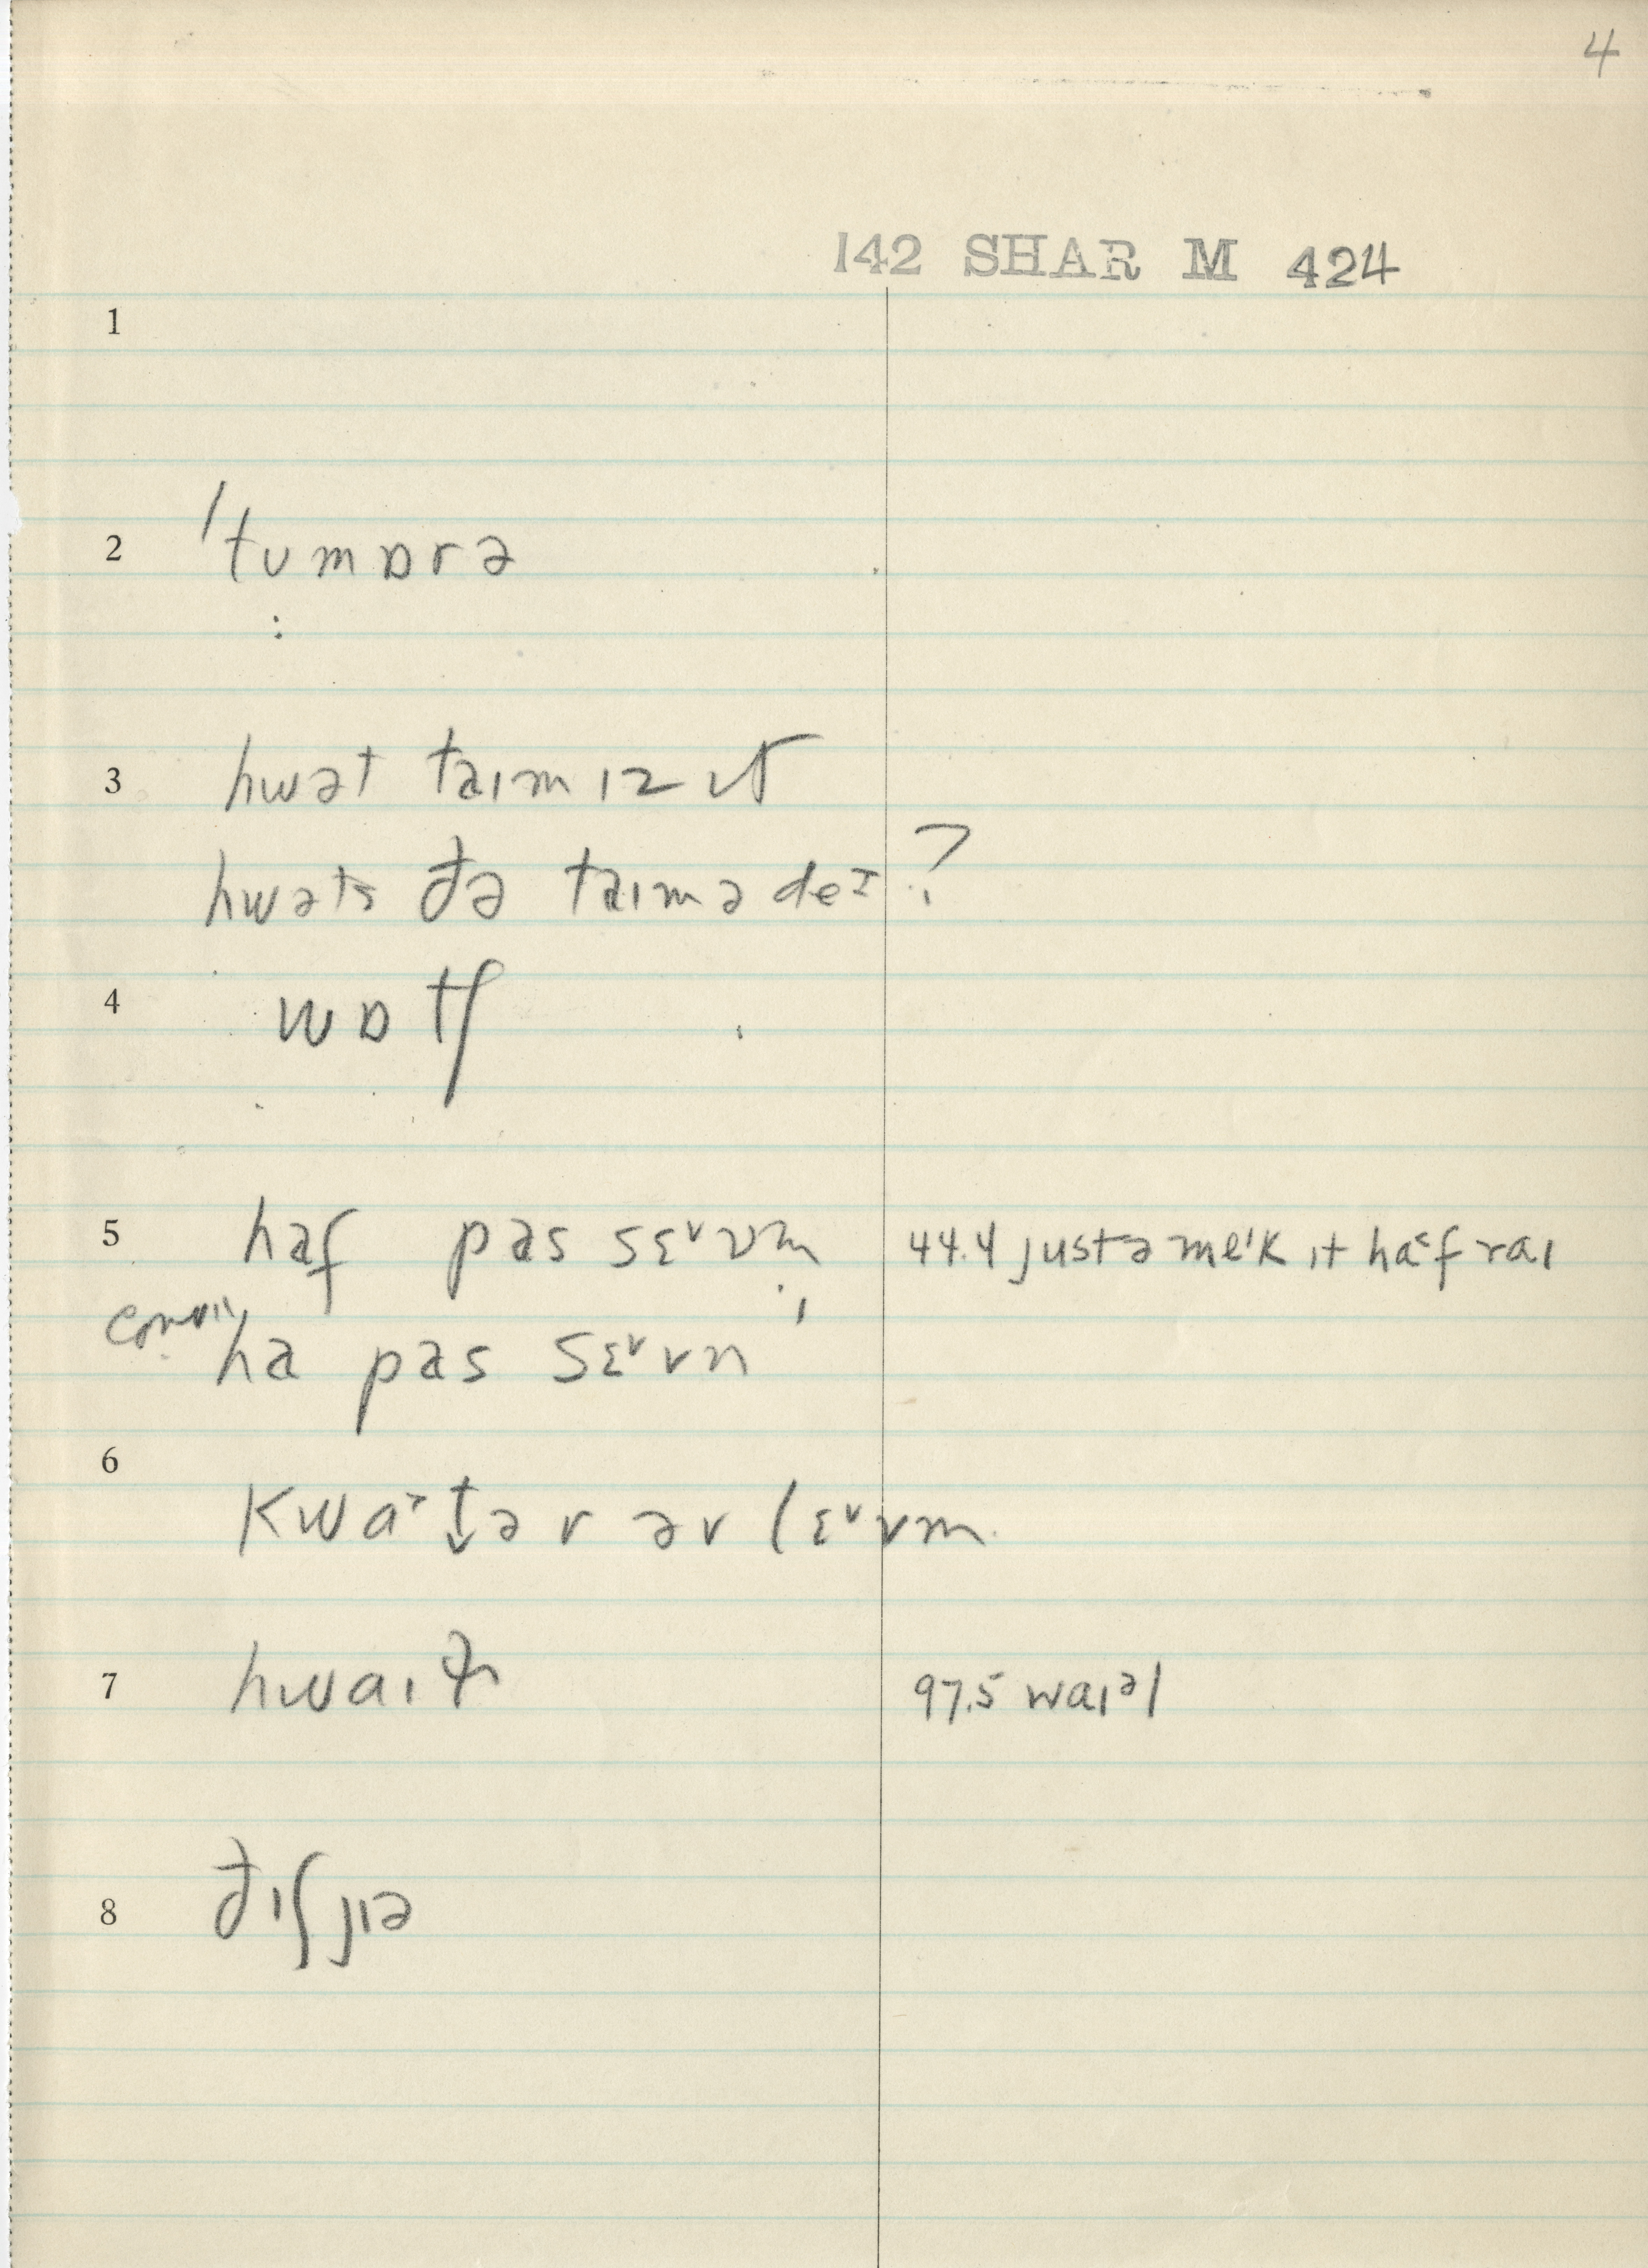 4
142 SHAR M 424
1
2 /tumɒrə
:
3 hwət taɪm ɪz ɪt
hwəts ðə taɪm ə deɪ?
4 wɒtʃ
5 haf pas sɛᵛvm̩ 44.4 just ə meˈk ɪt haᵋf raɪ
ha pas sɛᵛvn̩
6 kwaˠt̬ər əv lɛᵛvm
7 hwaɪt 97.5 waɪᵊl
8 ðɪʃ jɪə